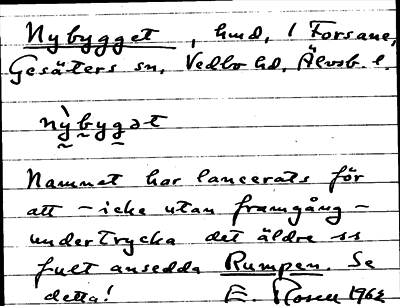 Nybygget, hmd, 1 Forsane,
Gesäters sn, Vedbo hd, Älvsb. l.
nỳbygət
Namnet har lancerats för
att – icke utan framgång –
undertrycka det äldre ss
fult ansedda Rumpen. Se
detta! E. Rosen 1962